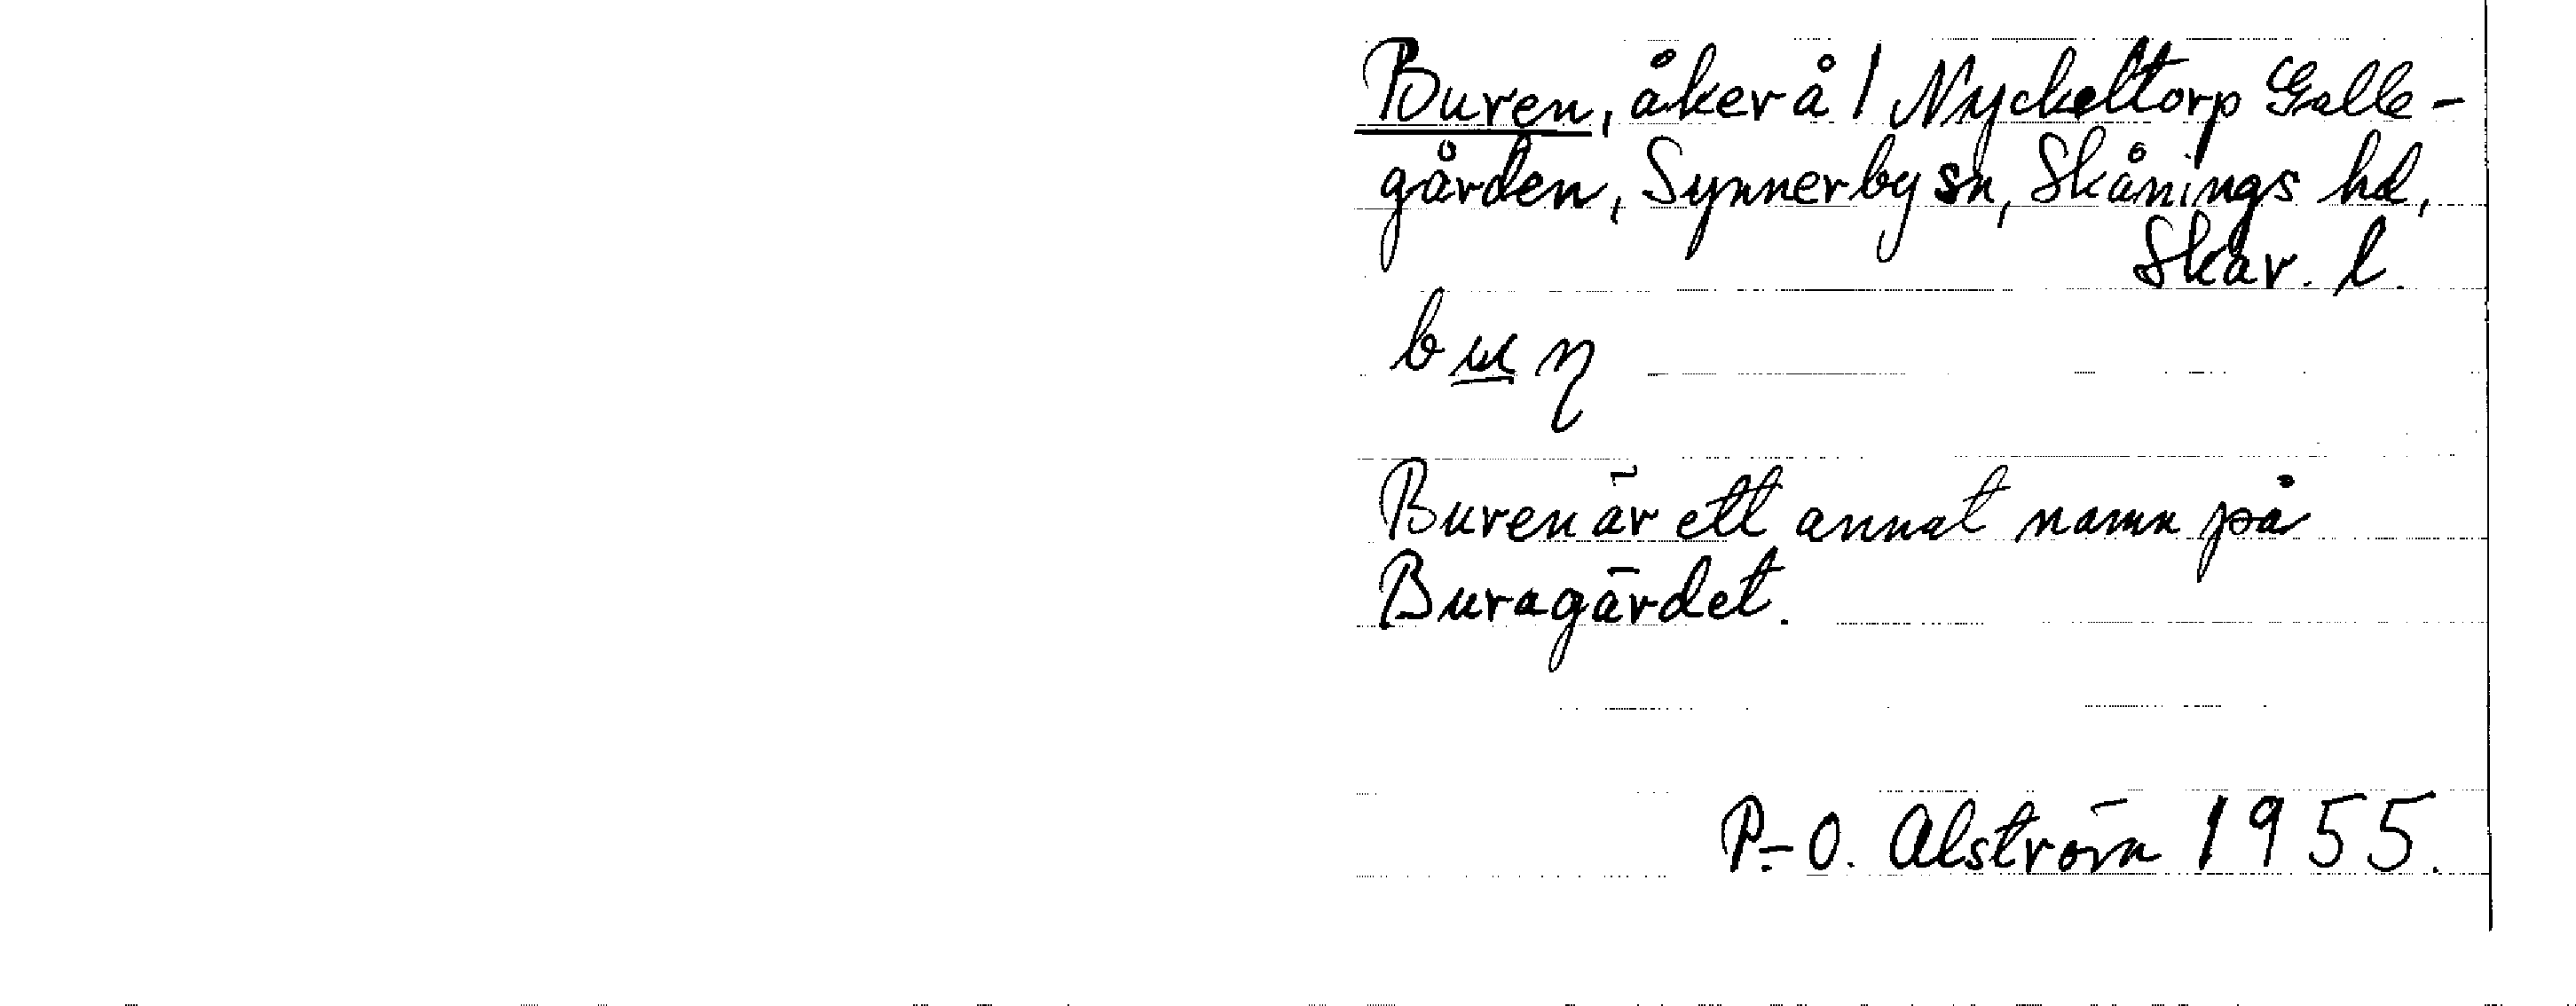 Buren, åker å 1 Nyckeltorp Galle-
gården, Synnerby sn, Skånings hd,
Skar. l.
Buren är ett annat namn på
Buragärdet.
P.-O. Alström 1955.